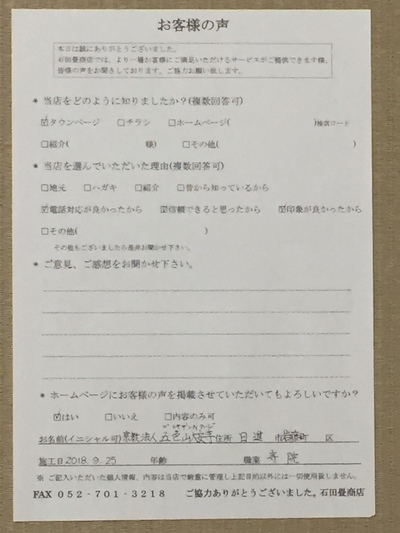 お客様の声
本日は誠にありがとうございました。
石田畳商店では、より一層お客様にご満足いただけるサービスがご提供できます様、
皆様の声をお聞きしております。ご協力お願い致します。
* 当店をどのように知りましたか?(複数回答可)
☑タウンページ □チラシ □ホームページ( )検索ワード
□紹介( 様) □その他( )
* 当店を選んでいただいた理由(複数回答可)
□地元 □ハガキ □紹介 □昔から知っているから
☑電話対応が良かったから ☑信頼できると思ったから ☑印象が良かったから
□その他( )
その他もございましたら是非お聞かせ下さい。
* ご意見、ご感想をお聞かせ下さい。
* ホームページにお客様の声を掲載させていただいてもよろしいですか?
☑はい □いいえ □内容のみ可
お名前(イニシャル可) 宗教法人 五色山大安寺 住所 日進 市 町 区
施工日 2018.9.25 年齢 職業 寺院
※ ご記入いただいた個人情報、内容は当店で厳重に管理し上記目的以外には一切使用致しません。
FAX 052-701-3218 ご協力ありがとうございました。石田畳商店